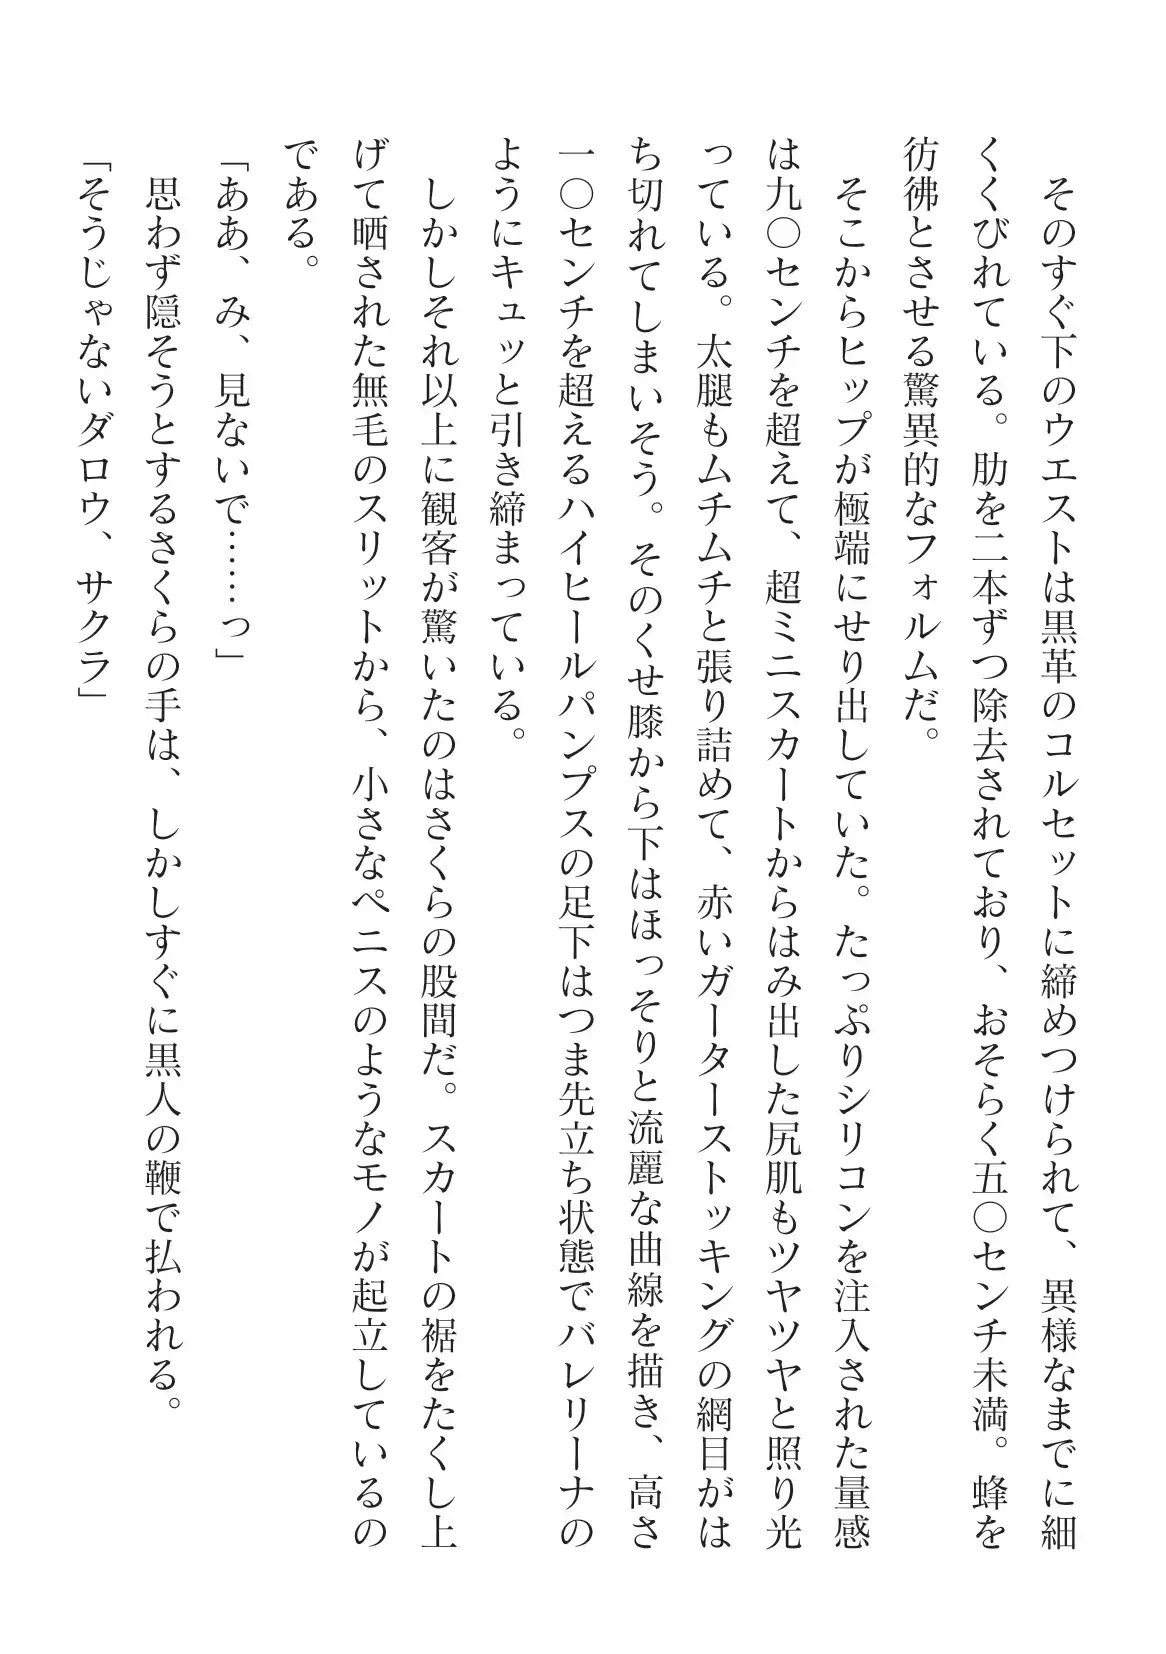 そのすぐ下のウエストは黒革のコルセットに締めつけられて、異様なまでに細
くくびれている。肋を二本ずつ除去されており、おそらく五〇センチ未満。蜂を
彷彿とさせる驚異的なフォルムだ。
そこからヒップが極端にせり出していた。たっぷりシリコンを注入された量感
は九〇センチを超えて、超ミニスカートからはみ出した尻肌もツヤツヤと照り光
っている。太腿もムチムチと張り詰めて、赤いガーターストッキングの網目がは
ち切れてしまいそう。そのくせ膝から下はほっそりと流麗な曲線を描き、高さ
一〇センチを超えるハイヒールパンプスの足下はつま先立ち状態でバレリーナの
ようにキュッと引き締まっている。
しかしそれ以上に観客が驚いたのはさくらの股間だ。スカートの裾をたくし上
げて晒された無毛のスリットから、小さなペニスのようなモノが起立しているの
である。
「ああ、み、見ないで……っ」
思わず隠そうとするさくらの手は、しかしすぐに黒人の鞭で払われる。
「そうじゃないダロウ、サクラ」